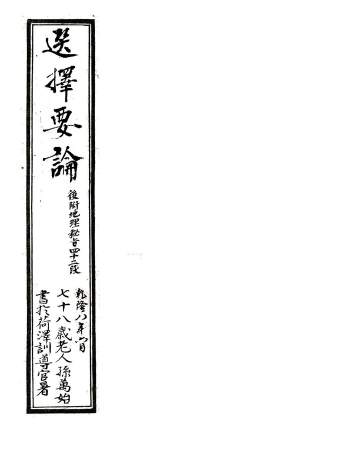 選擇要論
後附地理秘旨四十二段
乾隆八年八月
七十八歲老人孫萬始
書於荷澤訓導官署